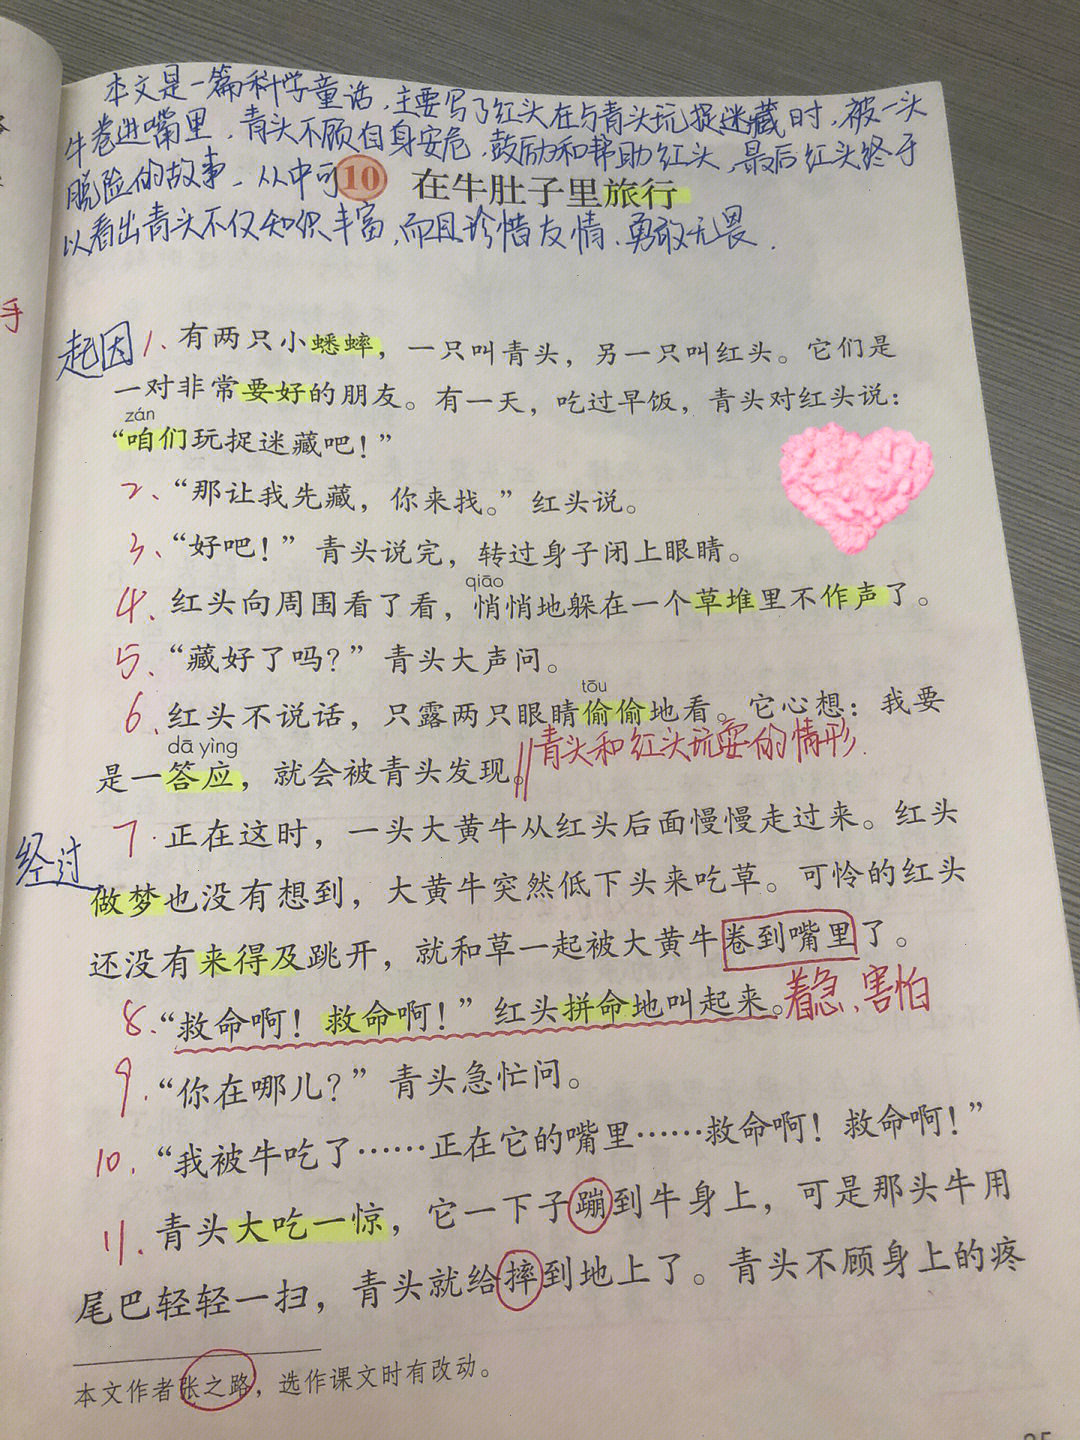 本文是一篇科学童话,主要写了红头在与青头玩捉迷藏时,被一头
牛卷进嘴里,青头不顾自身安危,鼓励和帮助红头,最后红头终于
脱险的故事,从中可
10 在牛肚子里旅行
以看出青头不仅知识丰富,而且珍惜友情、勇敢无畏.
手
起因
1. 有两只小蟋蟀，一只叫青头，另一只叫红头。它们是
一对非常要好的朋友。有一天，吃过早饭，青头对红头说：
zán
“咱们玩捉迷藏吧！”
2、“那让我先藏，你来找。”红头说。
3、“好吧！”青头说完，转过身子闭上眼睛。
qiāo
4、红头向周围看了看，悄悄地躲在一个草堆里不作声了。
5、“藏好了吗？”青头大声问。
tōu
6、红头不说话，只露两只眼睛偷偷地看。它心想：我要
dā yìng
是一答应，就会被青头发现。
青头和红头玩耍的情形.
经过
7. 正在这时，一头大黄牛从红头后面慢慢走过来。红头
做梦也没有想到，大黄牛突然低下头来吃草。可怜的红头
还没有来得及跳开，就和草一起被大黄牛卷到嘴里了。
8.“救命啊！救命啊！”红头拼命地叫起来。着急、害怕
9.“你在哪儿？”青头急忙问。
10.“我被牛吃了……正在它的嘴里……救命啊！救命啊！”
11. 青头大吃一惊，它一下子蹦到牛身上，可是那头牛用
尾巴轻轻一扫，青头就给摔到地上了。青头不顾身上的疼
本文作者张之路，选作课文时有改动。